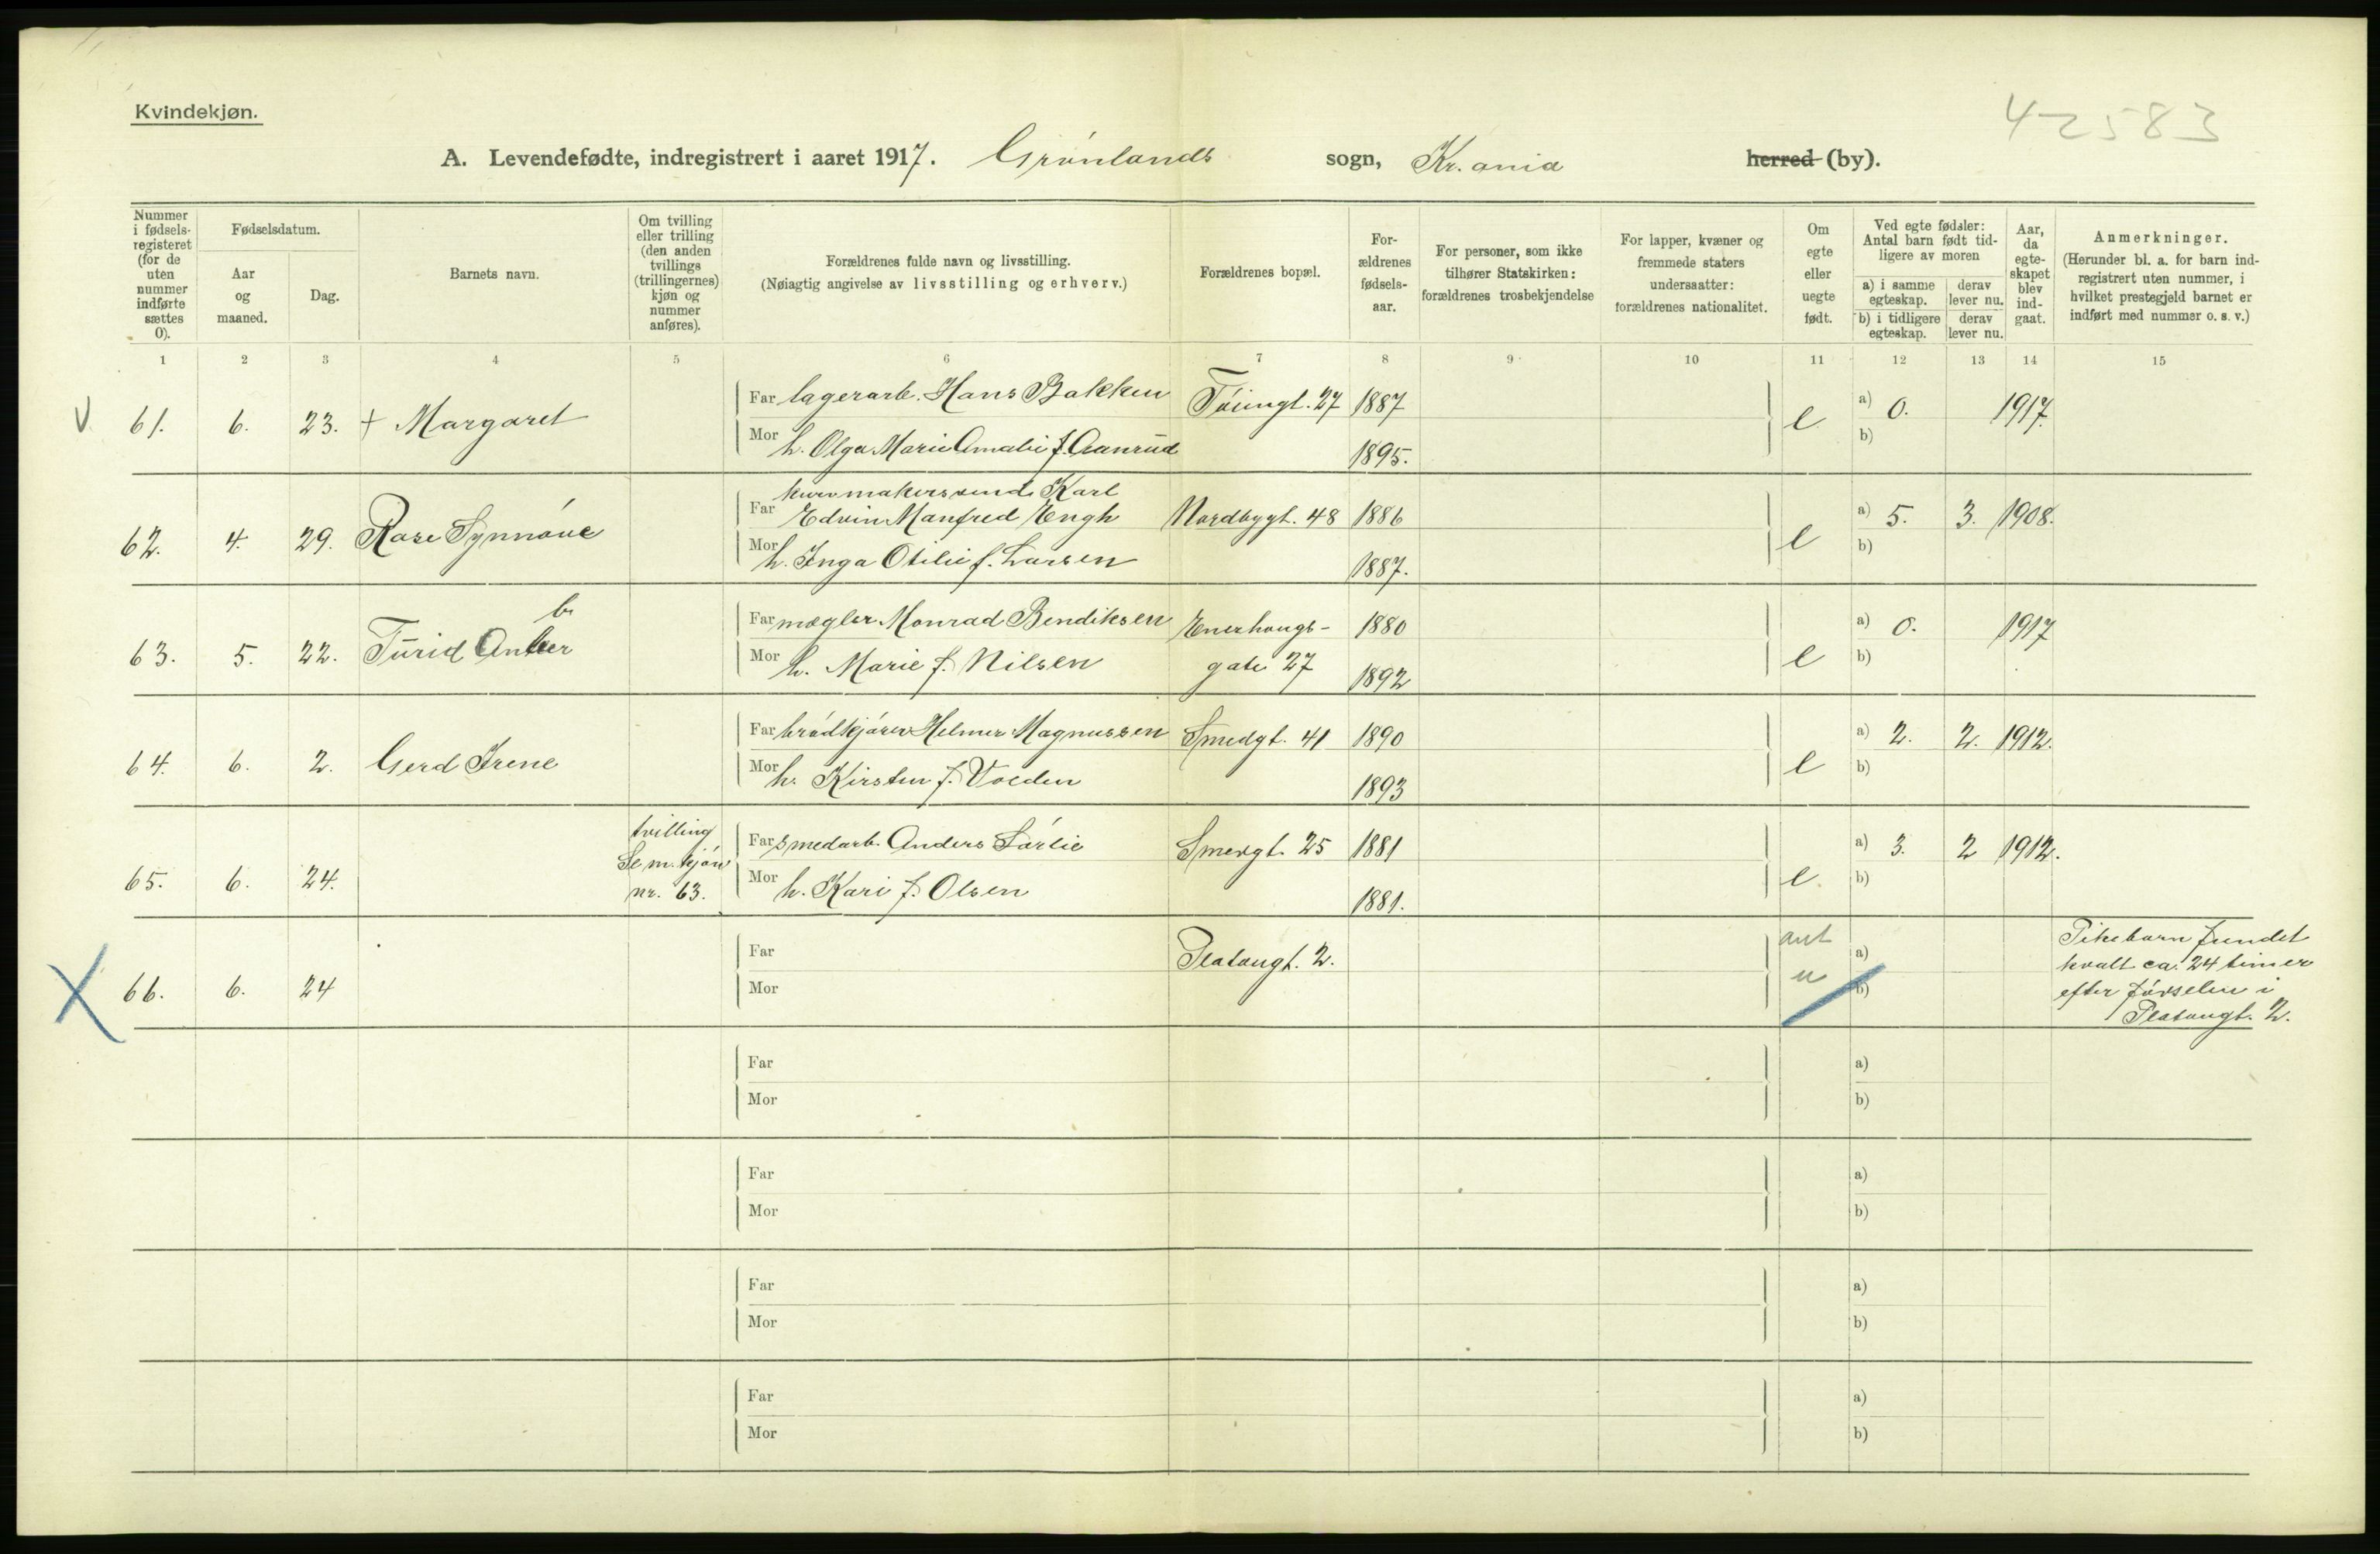 Kvindekjøn.
42583
A. Levendefødte, indregistrert i aaret 1917. Grønlands sogn, Kr.ania herred (by).
Nummer i fødsels-registeret (for de uten nummer indførte sættes 0).
Fødselsdatum.
Aar og maaned.
Dag.
Barnets navn.
Om tvilling eller trilling (den anden tvillings (trillingernes) kjøn og nummer anføres).
Forældrenes fulde navn og livsstilling.
(Nøiagtig angivelse av livsstilling og erhverv.)
Forældrenes bopæl.
For-ældrenes fødsels-aar.
For personer, som ikke tilhører Statskirken: forældrenes trosbekjendelse
For lapper, kvæner og fremmede staters undersaatter: forældrenes nationalitet.
Om egte eller uegte født.
Ved egte fødsler: Antal barn født tid-ligere av moren
a) i samme egteskap.
derav lever nu.
b) i tidligere egteskap.
derav lever nu.
Aar, da egte-skapet blev ind-gaat.
Anmerkninger.
(Herunder bl. a. for barn ind-registrert uten nummer, i hvilket prestegjeld barnet er indført med nummer o. s. v.)
1 2 3 4 5 6 7 8 9 10 11 12 13 14 15
V 61. 6. 23. + Margaret
Far lagerarb. Hans Bakken Tøiengt. 27 1887 e a) 0. 1917.
Mor h. Olga Marie Amalie f. Aanrud 1895. b)
kurvmakersvend Karl
62. 4. 29. Rase Synnøve
Far Edvin Manfred Engh Nordbygt. 48 1886 e a) 5. 3. 1908.
Mor h. Inga Otilie f. Larsen 1887. b)
b
63. 5. 22. Turid Anker
Far mægler Monrad Bendiksen Enerhaugs- 1880 e a) 0. 1917
Mor h. Marie f. Nilsen gate 27 1892 b)
64. 6. 2. Gerd Irene
Far brødkjører Helmer Magnussen Smedgt. 41 1890 e a) 2. 2. 1912.
Mor h. Kirsten f. Volden 1893 b)
65. 6. 24. tvilling
Se m. kjøn
nr. 63.
Far smedarb. Anders Sørlie Smedgt. 25 1881 e. a) 3. 2 1912.
Mor h. Kari f. Olsen 1881. b)
X 66. 6. 24
Far Platougt. 2. ant a)
Mor u b)
Pikebarn fundet
kvalt ca. 24 timer
efter fødselen i
Platougt. 2.
Far a)
Mor b)
Far a)
Mor b)
Far a)
Mor b)
Far a)
Mor b)